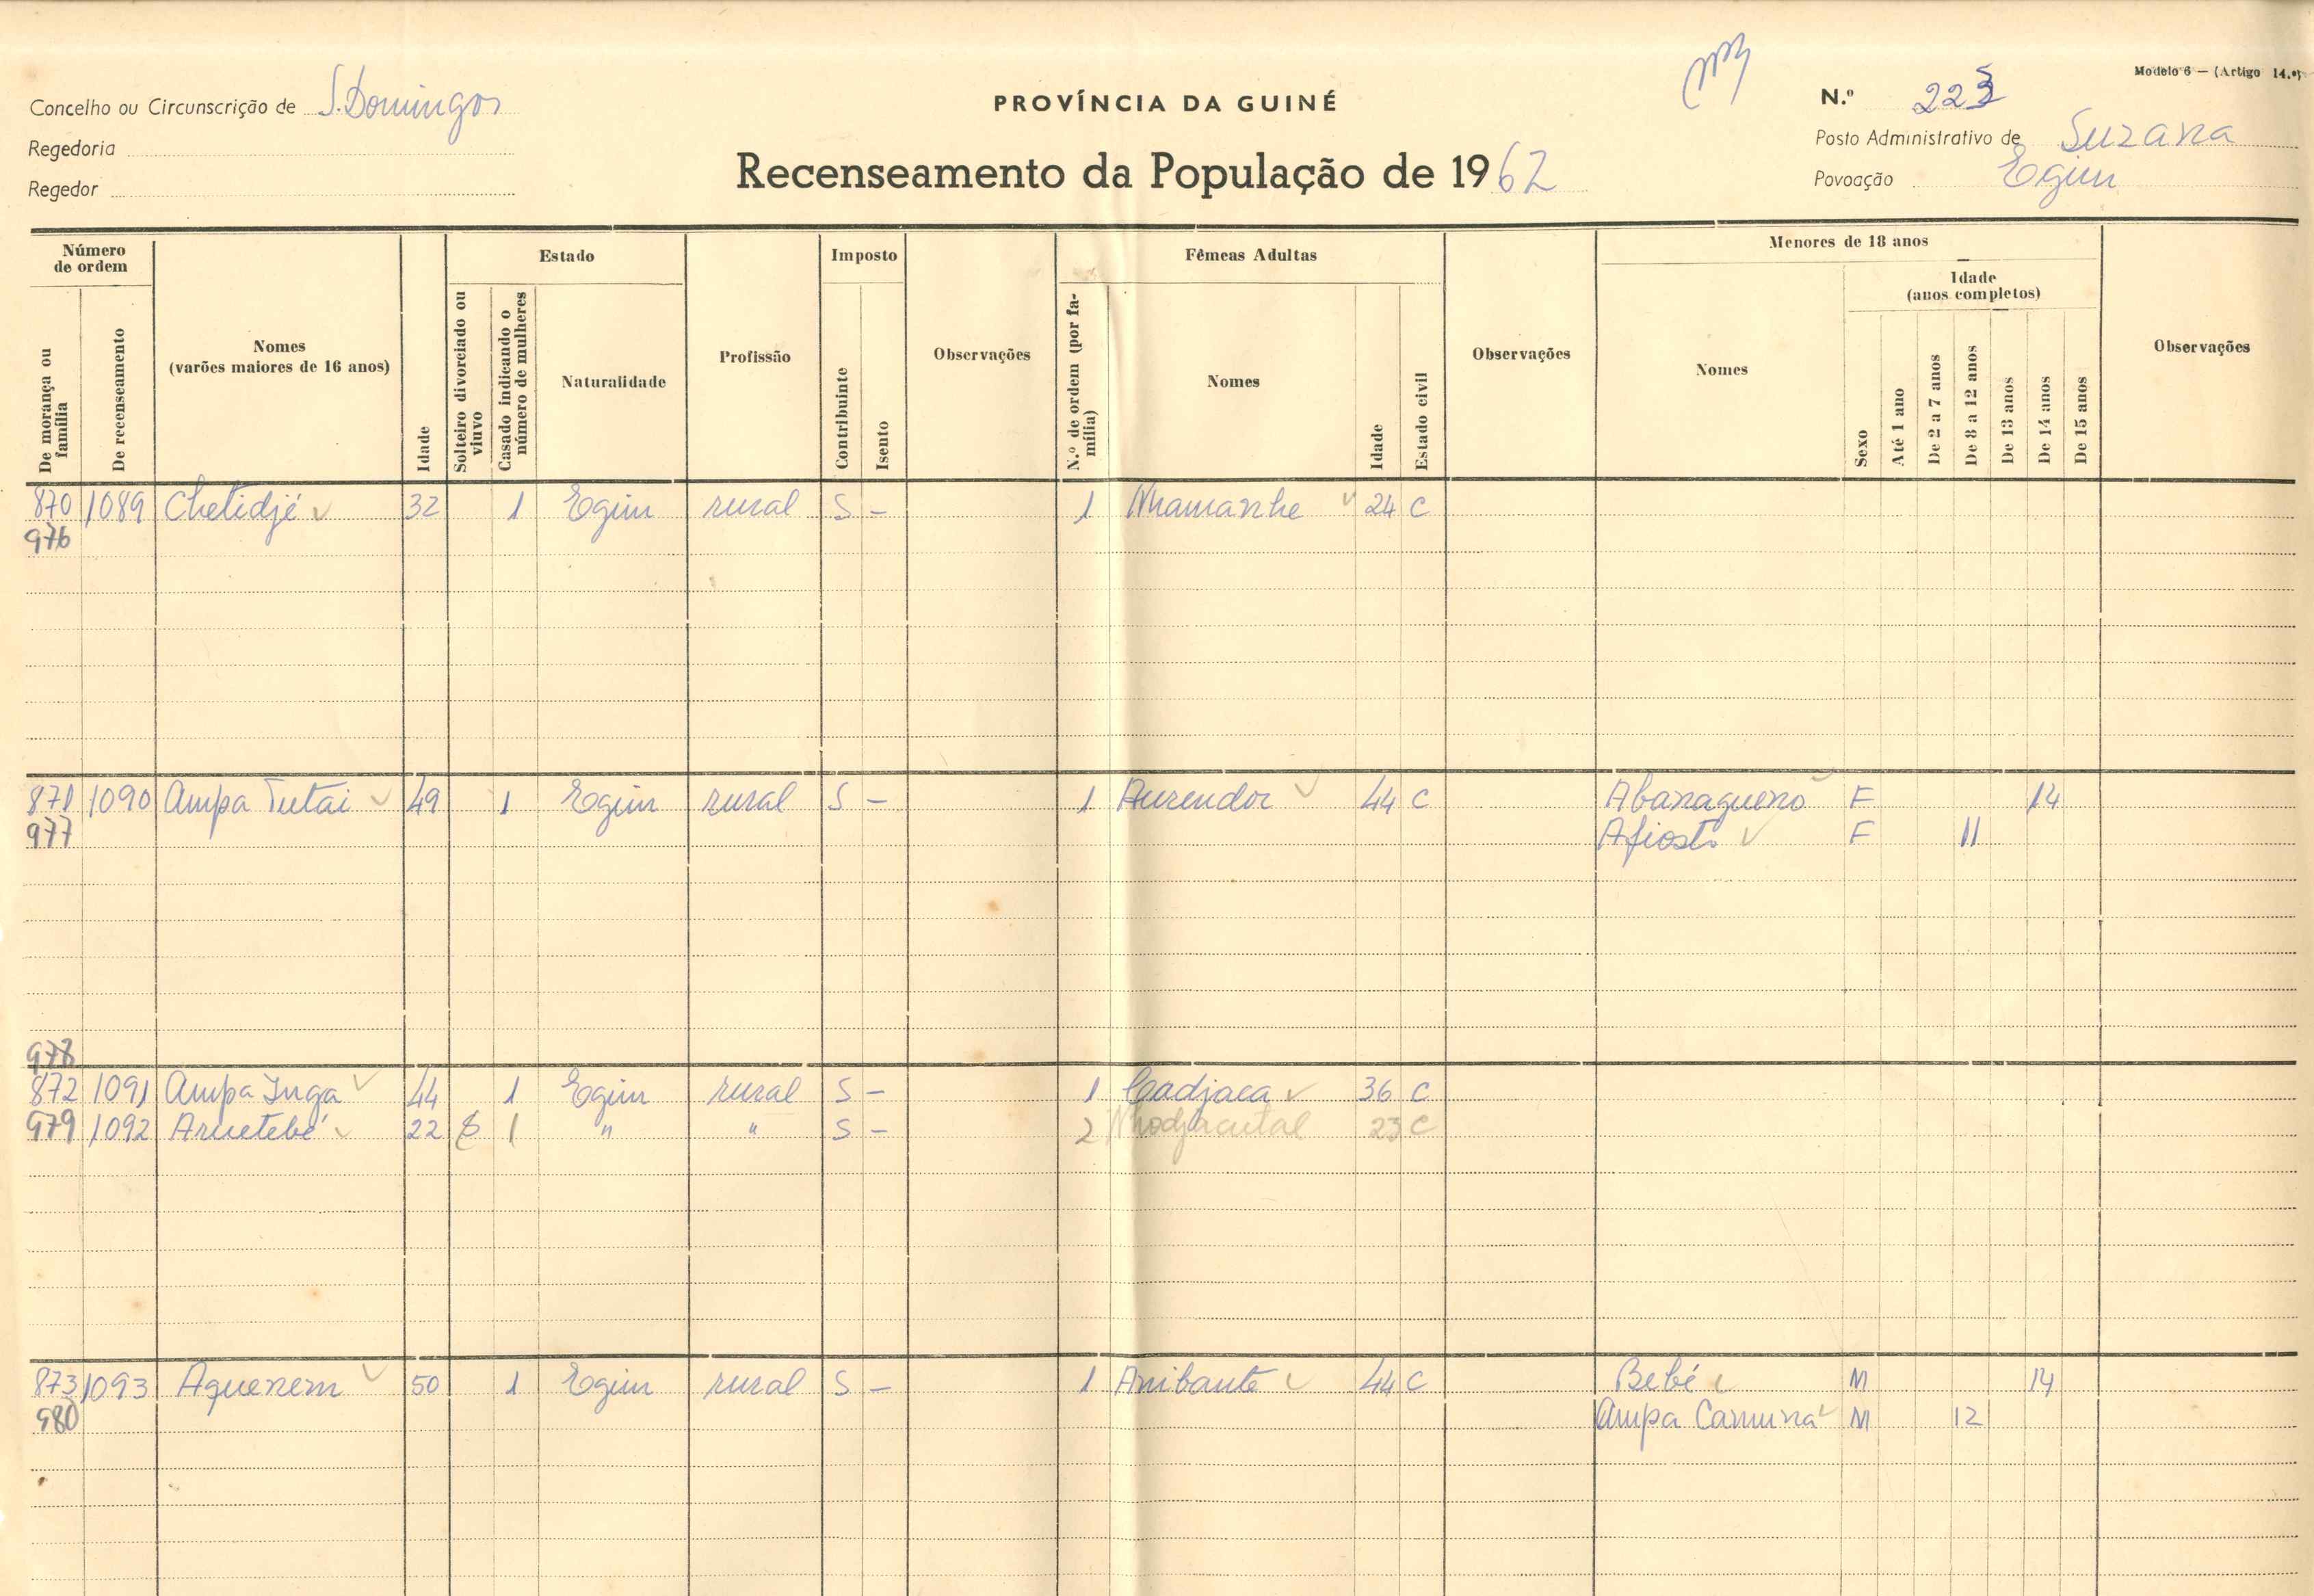 Modelo 6 — (Artigo 14.º)
Concelho ou Circunscrição de S. Domingos
PROVÍNCIA DA GUINÉ
N.º 223
Regedoria
Posto Administrativo de Suzana
Regedor
Recenseamento da População de 1962
Povoação Egim
Número de ordem
Estado
Imposto
Fêmeas Adultas
Menores de 18 anos
Idade
(anos completos)
De morança ou família
De recenseamento
Nomes
(varões maiores de 16 anos)
Idade
Solteiro divorciado ou viuvo
Casado indicando o número de mulheres
Naturalidade
Profissão
Contribuinte
Isento
Observações
N.º de ordem (por família)
Nomes
Idade
Estado civil
Observações
Nomes
Sexo
Até 1 ano
De 2 a 7 anos
De 8 a 12 anos
De 13 anos
De 14 anos
De 15 anos
Observações
870 1089 Chetidjé 32 1 Egim rural S – 1 Nhamanhe 24 C
976
871 1090 Ampa Tutai 49 1 Egim rural S – 1 Aurendor 44 C Abanagueno F 14
977 Afiosti F 11
978
872 1091 Ampa Inga 44 1 Egim rural S – 1 Cadjaca 36 C
979 1092 Aruetebé 22 1 " " S – 2 23 C
873 1093 Aguenem 50 1 Egim rural S – 1 Anibante 44 C Bebé M 14
980 Ampa Camuna M 12